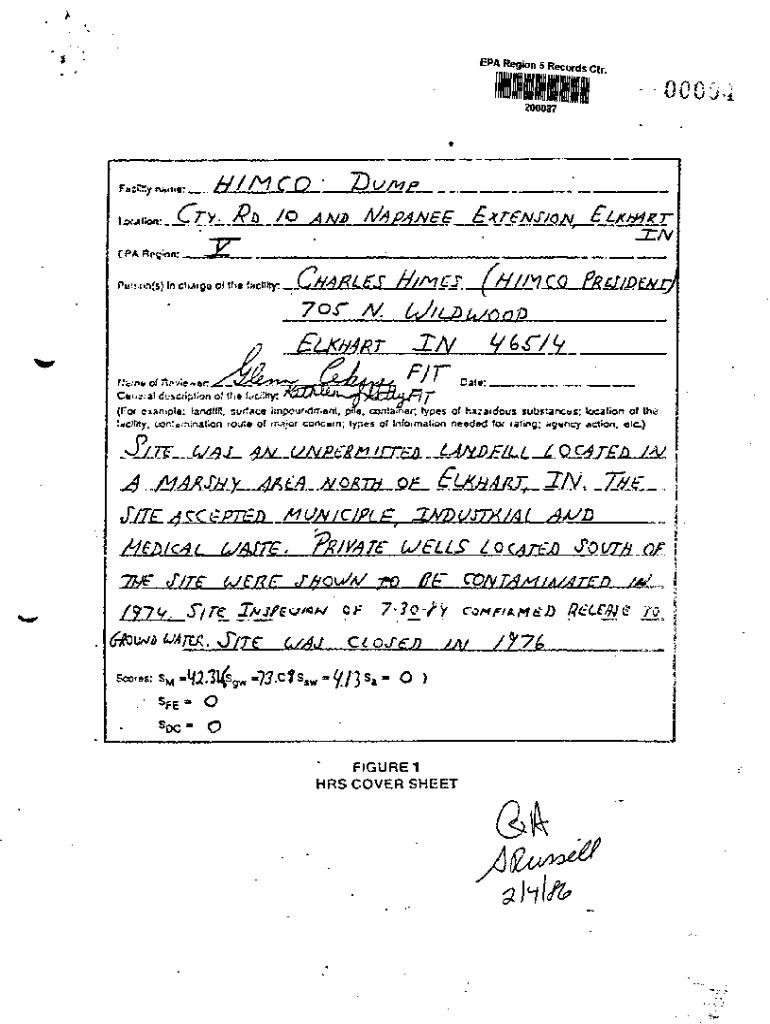 EPA Region 5 Records Ctr.
200087
Facility name: HIMCO DUMP
Location: CTY. RD 10 AND NAPANEE EXTENSION, ELKHART
IN
EPA Region: V
Person(s) in charge of the facility: CHARLES HIMES (HIMCO PRESIDENT)
705 N. WILDWOOD
ELKHART IN 46514
Name of Reviewer: Glenn FIT Date:
General description of the facility: Kathleen FIT
(For example: landfill, surface impoundment, pile, container; types of hazardous substances; location of the
facility, contamination route of major concern; types of information needed for rating; agency action, etc.)
SITE WAS AN UNPERMITTED LANDFILL LOCATED IN
A MARSHY AREA NORTH OF ELKHART, IN. THE
SITE ACCEPTED MUNICIPLE, INDUSTRIAL AND
MEDICAL WASTE. PRIVATE WELLS LOCATED SOUTH OF
THE SITE WERE SHOWN TO BE CONTAMINATED IN
1974. SITE INSPECTION OF 7-30-84 CONFIRMED RELEASE TO
GROUND WATER. SITE WAS CLOSED IN 1976
Scores: SM = 42.31 (Sgw = 73.08 Ssw = 4.13 Sa = 0 )
SFE = 0
SDC = 0
FIGURE 1
HRS COVER SHEET
QA
S Russell
2/4/86